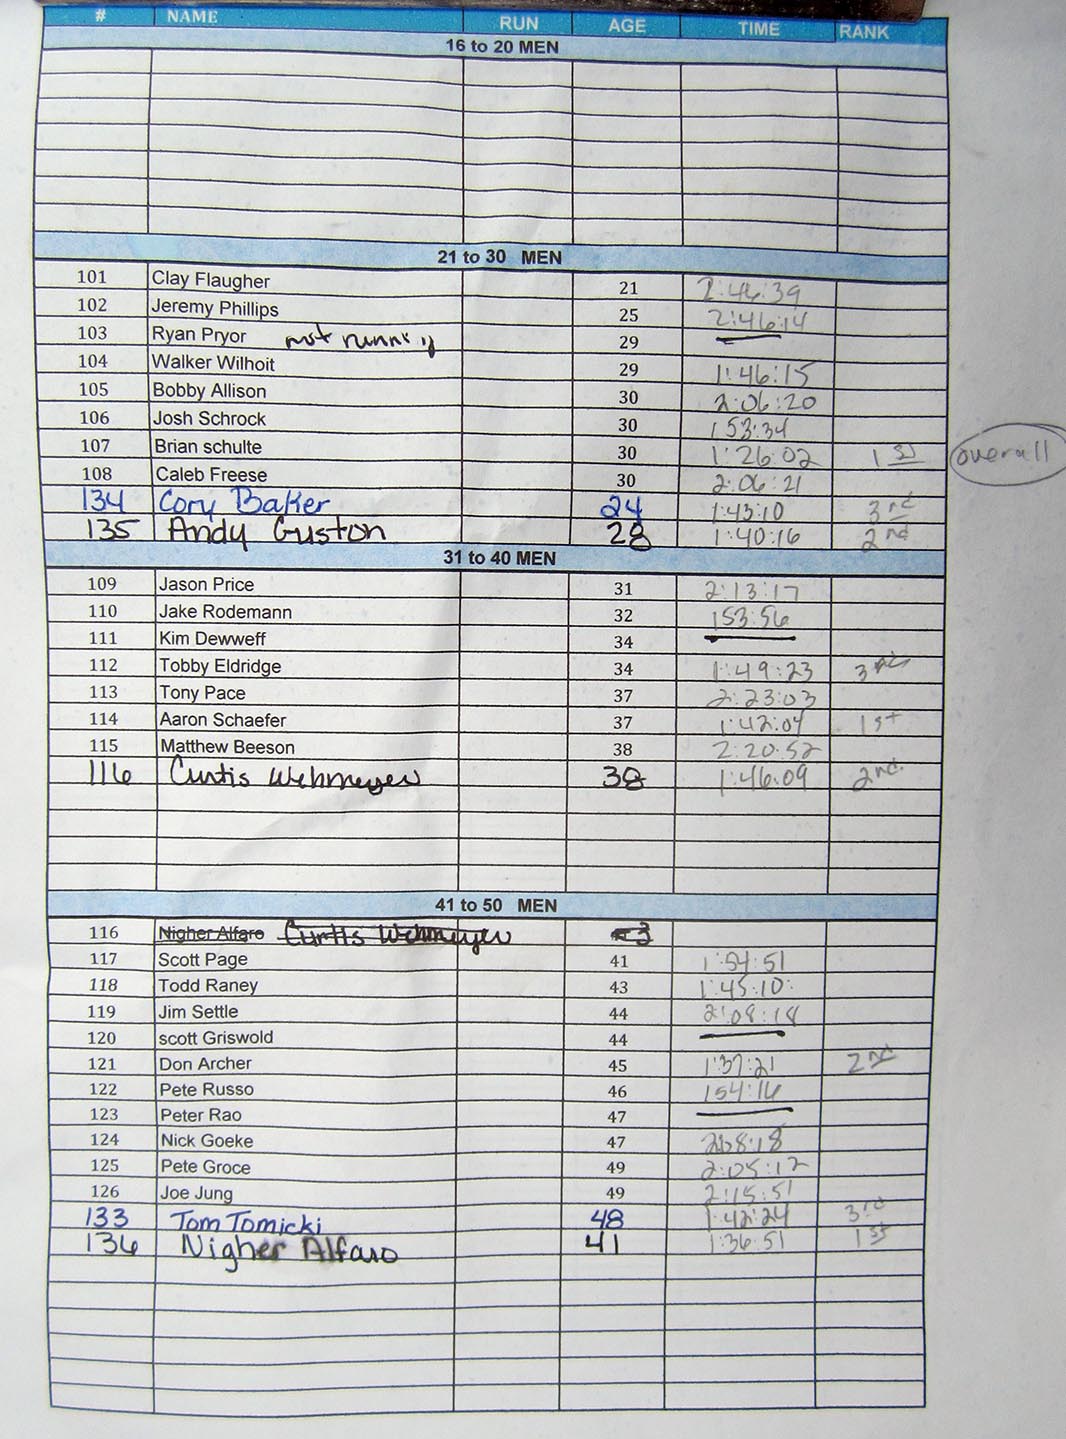 # NAME RUN AGE TIME RANK
16 to 20 MEN
21 to 30 MEN
101 Clay Flaugher 21 2:46:39
102 Jeremy Phillips 25 2:46:14
103 Ryan Pryor not running 29
104 Walker Wilhoit 29 1:46:15
105 Bobby Allison 30 2:06:20
106 Josh Schrock 30 153:34
107 Brian schulte 30 1:26:02 1st overall
108 Caleb Freese 30 2:06:21
134 Cory Baker 24 1:43:10 3rd
135 Andy Guston 28 1:40:16 2nd
31 to 40 MEN
109 Jason Price 31 2:13:17
110 Jake Rodemann 32 153:56
111 Kim Dewweff 34
112 Tobby Eldridge 34 1:49:23 3rd
113 Tony Pace 37 2:23:03
114 Aaron Schaefer 37 1:42:04 1st
115 Matthew Beeson 38 2:20:52
116 Curtis Wehmeyer 38 1:46:09 2nd.
41 to 50 MEN
116 Nigher Alfaro Curtis Wehmeyer
117 Scott Page 41 1:54:51
118 Todd Raney 43 1:45:10
119 Jim Settle 44 2:08:18
120 scott Griswold 44
121 Don Archer 45 1:37:21 2nd
122 Pete Russo 46 154:16
123 Peter Rao 47
124 Nick Goeke 47
125 Pete Groce 49 2:05:12
126 Joe Jung 49 2:15:51
133 Tom Tomicki 48 1:42:24 3rd
136 Nigher Alfaro 41 1:36:51 1st